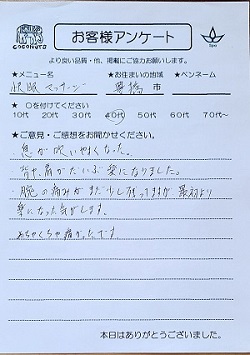 COCONUTS
お客様アンケート
Spa
より良い品質・他、掲載にご協力お願いします。
★メニュー名 ★お住まいの地域 ★ペンネーム
快眠マッサージ 豊橋 市
★ ○を付けてください
10代 20代 30代 40代 50代 60代 70代~
★ご意見・ご感想をお聞かせください。
息が吸いやすくなった。
背中、肩がだいぶ楽になりました。
・腕の痛みがまだ少し残ってますが、最初より
楽になった気がします。
めちゃくちゃ痛かったです
本日はありがとうございました。